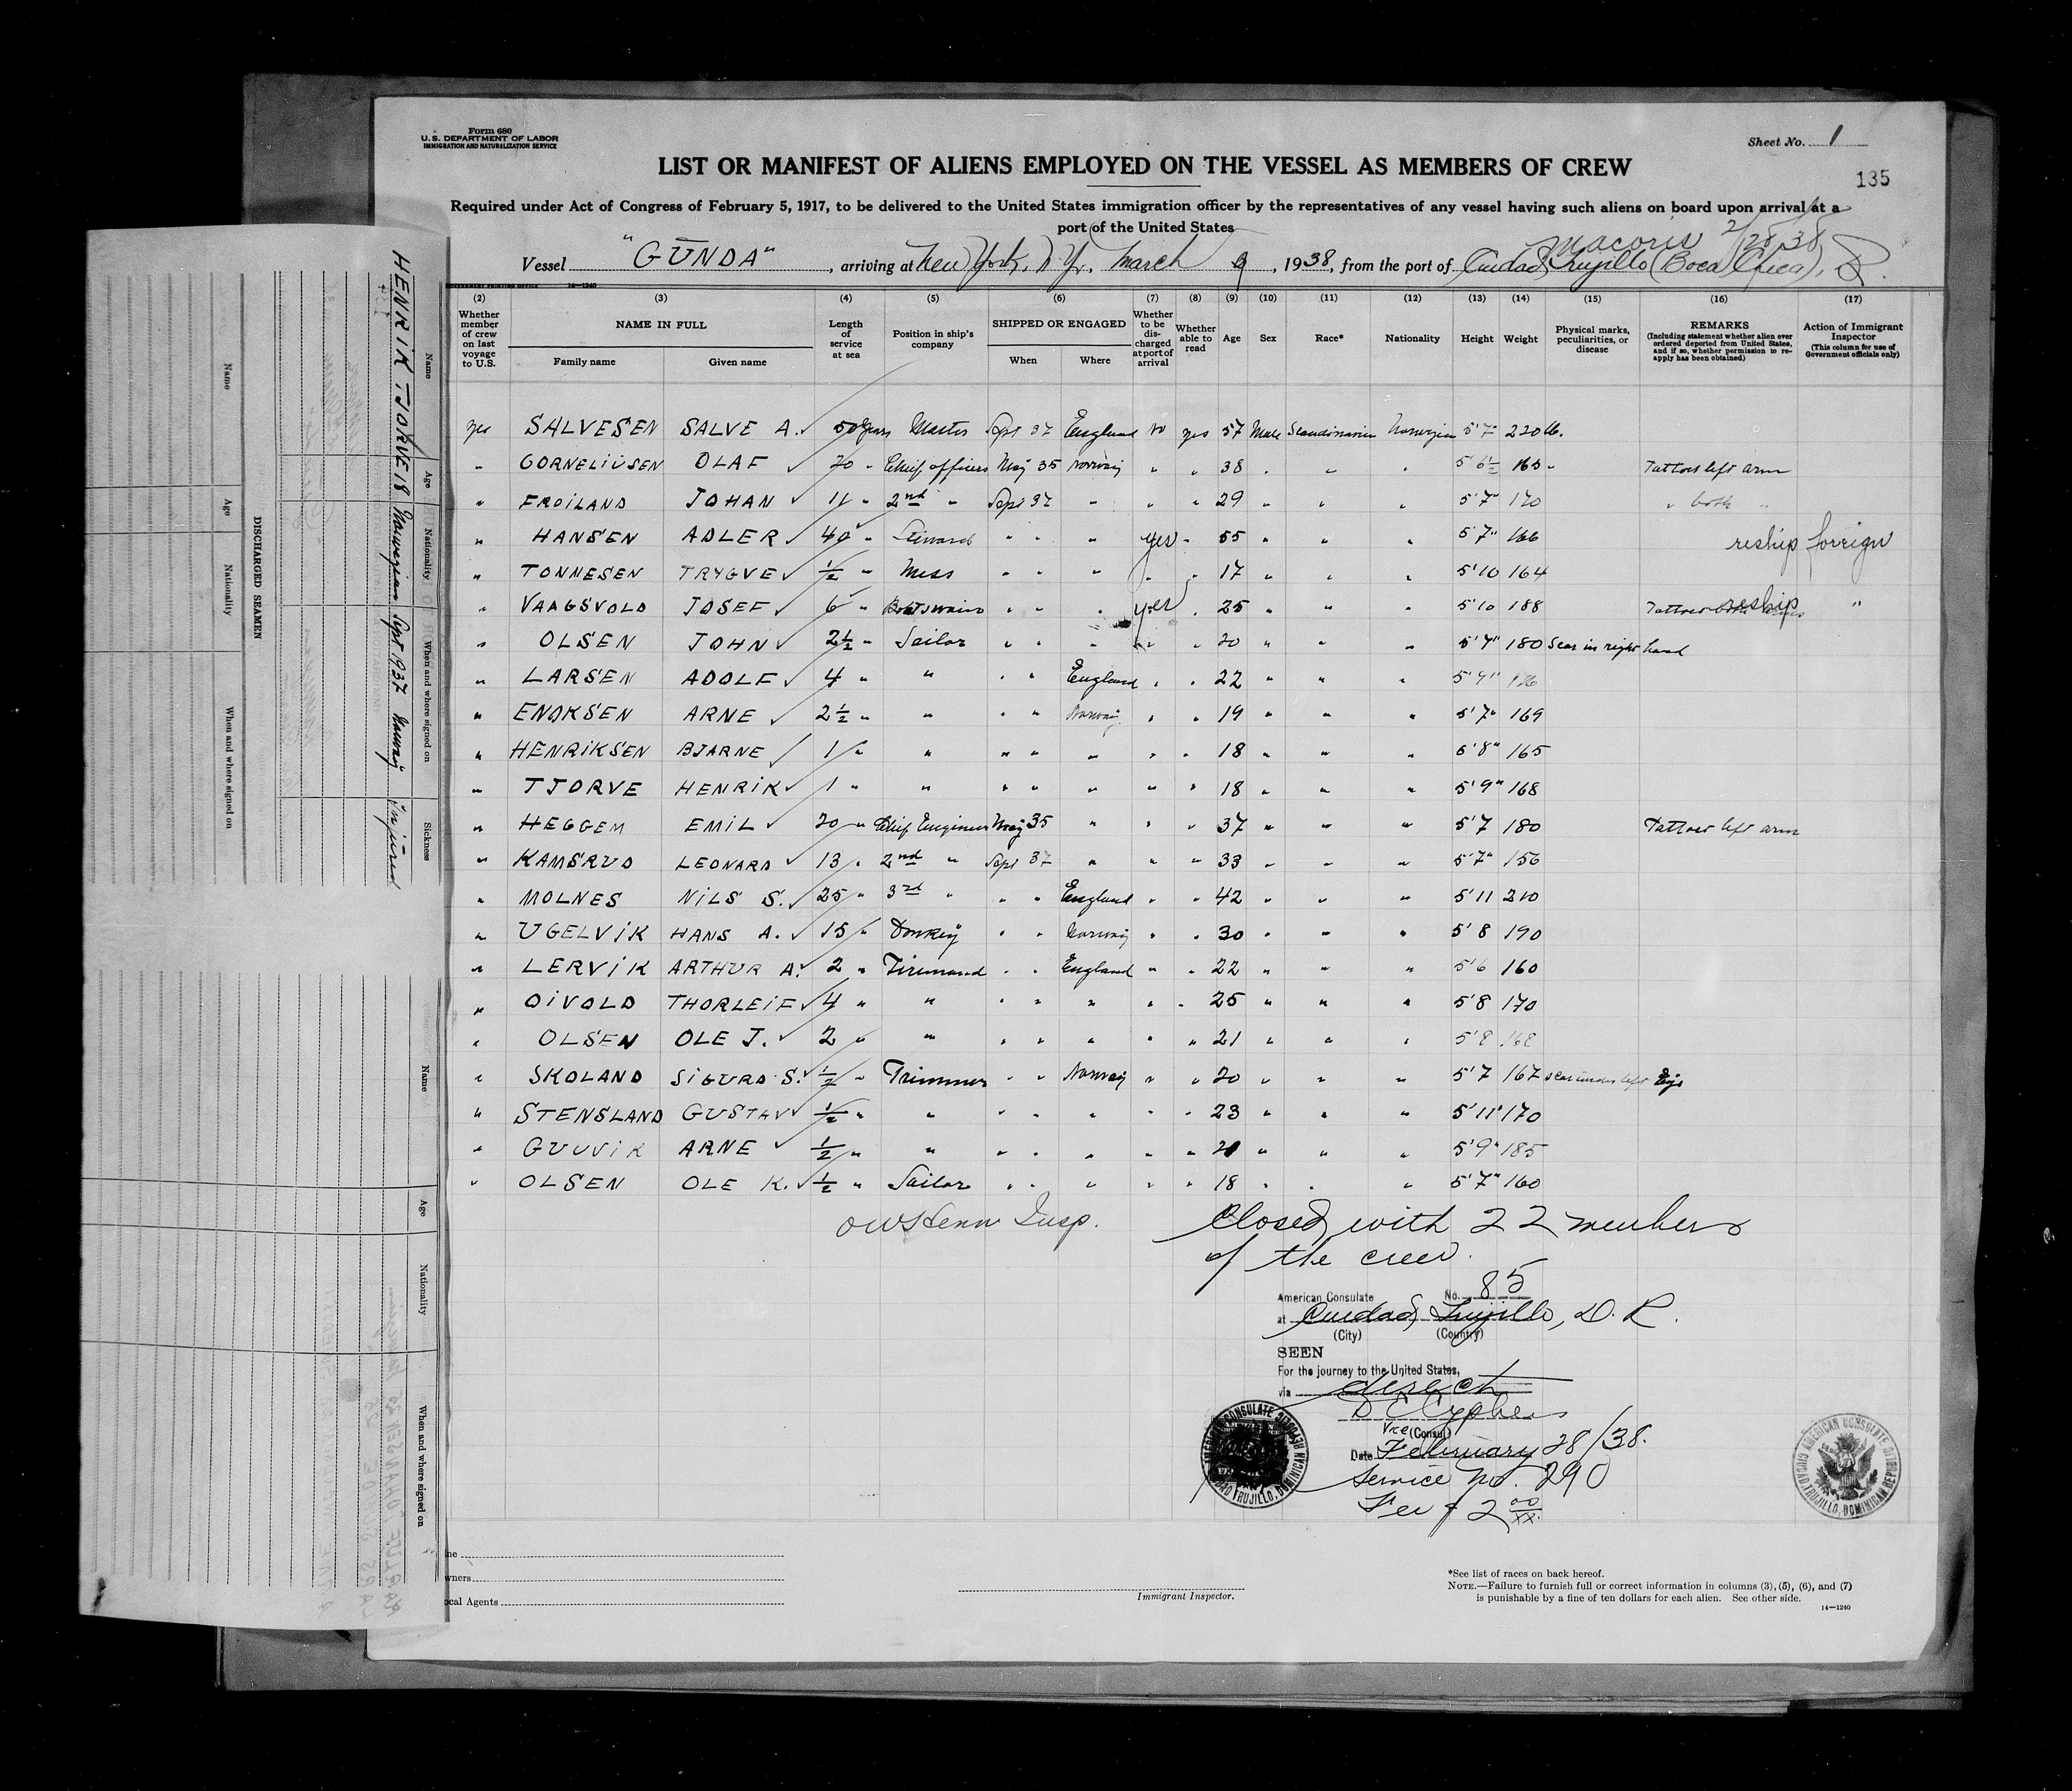 Form 680
U. S. DEPARTMENT OF LABOR
IMMIGRATION AND NATURALIZATION SERVICE
Sheet No. 1
135
LIST OR MANIFEST OF ALIENS EMPLOYED ON THE VESSEL AS MEMBERS OF CREW
Required under Act of Congress of February 5, 1917, to be delivered to the United States immigration officer by the representatives of any vessel having such aliens on board upon arrival at a
port of the United States
Macoris 2/28/38
Vessel "GUNDA", arriving at New York, N.Y., March 9, 1938, from the port of Ciudad Trujillo (Boca Chica), D.R.
(2) (3) (4) (5) (6) (7) (8) (9) (10) (11) (12) (13) (14) (15) (16) (17)
Whether member of crew on last voyage to U.S.
NAME IN FULL
Family name
Given name
Length of service at sea
Position in ship's company
SHIPPED OR ENGAGED
When
Where
Whether to be discharged at port of arrival
Whether able to read
Age
Sex
Race*
Nationality
Height
Weight
Physical marks, peculiarities, or disease
REMARKS
(Including statement whether alien ever ordered deported from United States, and if so, whether permission to reapply has been obtained)
Action of Immigrant Inspector
(This column for use of Government officials only)
yes SALVESEN SALVE A. 50 years Master Sept 37 England No yes 57 Male Scandinavian Norwegian 5'7" 220 lb.
" CORNELIUSEN OLAF 20 " Chief officer May 35 Norway " " 38 " " " 5'6½ 165 " Tattoes left arm
" FROILAND JOHAN 11 " 2nd " Sept 37 " " " 29 " " " 5'7" 170 " both "
" HANSEN ADLER 40 " Steward " " " yes " 55 " " " 5'7" 166 reship foreign
" TONNESEN TRYGVE ½ " Mess " " " " " 17 " " " 5'10 164
" VAAGSVOLD JOSEF 6 " Boatswain " " " yes " 25 " " " 5'10 188 Tattoes reship "
" OLSEN JOHN 2½ " Sailor " " " " " 20 " " " 5'7" 180 Scar in right hand
" LARSEN ADOLF 4 " " " " England " " 22 " " " 5'9"
" ENOKSEN ARNE 2½ " " " " Norway " " 19 " " " 5'7" 169
" HENRIKSEN BJARNE 1 " " " " " " " 18 " " " 6'8" 165
" TJORVE HENRIK 1 " " " " " " " 18 " " " 5'9" 168
" HEGGEM EMIL 20 " Chief Engineer May 35 " " " 37 " " " 5'7 180 Tattoes left arm
" KAMSRUD LEONARD 13 " 2nd " Sept 37 " " " 33 " " " 5'7" 156
" MOLNES NILS S. 25 " 3rd " " " England " " 42 " " " 5'11 210
" UGELVIK HANS A. 15 " Donkey " " Norway " " 30 " " " 5'8 190
" LERVIK ARTHUR A. 2 " Firemand " " England " " 22 " " " 5'6 160
" OIVOLD THORLEIF 4 " " " " " " " 25 " " " 5'8 170
" OLSEN OLE J. 2 " " " " " " " 21 " " " 5'8 168
" SKOLAND SIGURD S. ½ " Trimmer " " Norway " " 20 " " " 5'7 167 scar under left Eye
" STENSLAND GUSTAV ½ " " " " " " " 23 " " " 5'11" 170
" GUUVIK ARNE ½ " " " " " " " 21 " " " 5'9" 185
" OLSEN OLE K. ½ " Sailor " " " " " 18 " " " 5'7" 160
Insp.
Closed with 22 members
of the crew.
American Consulate No. 85
at Ciudad Trujillo, D. R.
(City) (Country)
SEEN
For the journey to the United States,
via direct
Vice (Consul)
Date February 28/38.
Service No. 290
Fee $ 2 00/xx
AMERICAN CONSULATE
CIUDAD TRUJILLO, DOMINICAN REPUBLIC
Immigrant Inspector.
wners
ocal Agents
*See list of races on back hereof.
NOTE.—Failure to furnish full or correct information in columns (3), (5), (6), and (7)
is punishable by a fine of ten dollars for each alien. See other side.
14—1240
DISCHARGED SEAMEN
Name Age Nationality When and where signed on Sickness
HENRIK TJORVE 18 Norwegian Sept 1937 Norway Injured
Name Age Nationality When and where signed on
Name Age Nationality When and where signed on